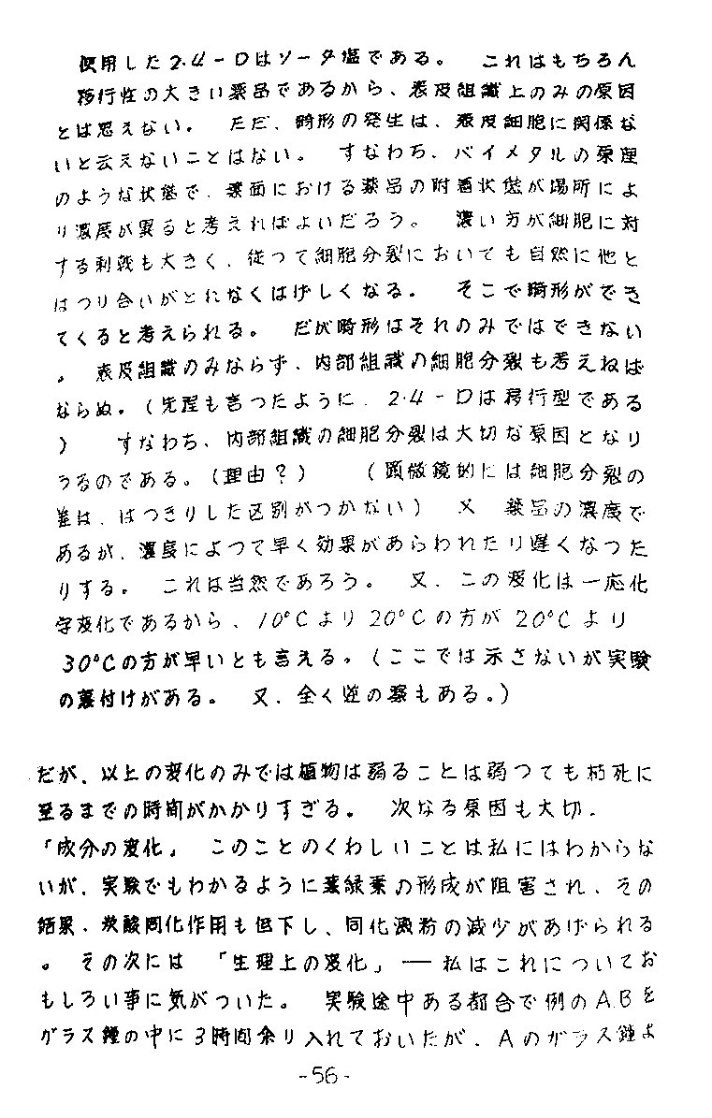 使用した2.4-Dはソータ塩である。 これはもちろん
移行性の大きい薬品であるから、表皮組織上のみの原因
とは思えない。 ただ、畸形の発生は、表皮細胞に関係な
いと云えないことはない。 すなわち、バイメタルの原理
のような状態で、葉面における薬品の附着状態が場所によ
り濃度が異ると考えればよいだろう。 濃い方が細胞に対
する刺戟も大きく、従つて細胞分裂においても自然に他と
はつり合いがとれなくはげしくなる。 そこで畸形ができ
てくると考えられる。 だが畸形はそれのみではできない
。 表皮組織のみならず、内部組織の細胞分裂も考えねば
ならぬ。(先程も言つたように、2.4-Dは移行型である
) すなわち、内部組織の細胞分裂は大切な原因となり
うるのである。(理由?) (顕微鏡的には細胞分裂の
差は、はつきりした区別がつかない) 又 薬品の濃度で
あるが、濃度によつて早く効果があらわれたり遅くなつた
りする。 これは当然であろう。 又、この変化は一応化
学変化であるから、10°Cより20°Cの方が20°Cより
30°Cの方が早いとも言える。(ここでは示さないが実験
の裏付けがある。 又、全く逆の薬もある。)
だが、以上の変化のみでは植物は弱ることは弱つても枯死に
至るまでの時間がかかりすぎる。 次なる原因も大切、
「成分の変化」 このことのくわしいことは私にはわからな
いが、実験でもわかるように葉緑素の形成が阻害され、その
結果、炭酸同化作用も低下し、同化澱粉の減少があげられる
。 その次には 「生理上の変化」 ── 私はこれについてお
もしろい事に気がついた。 実験途中ある都合で例のABを
ガラス鐘の中に3時間余り入れておいたが、Aのガラス鐘よ
-56-